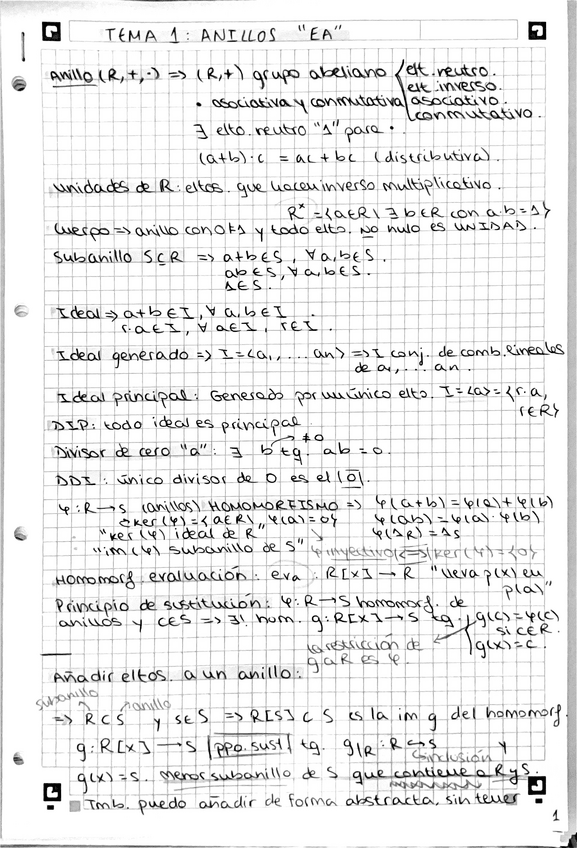 TEMA 1: ANILLOS "EA"
Anillo (R,+,·) => (R,+) grupo abeliano { elt. neutro.
elt. inverso.
• asociativa y conmutativa asociativo.
conmutativo.
∃ elto. neutro "1" para ·.
(a+b)·c = ac+bc (distributiva).
unidades de R: eltos. que tienen inverso multiplicativo.
R* = {a∈R | ∃ b∈R con a·b=1}
Cuerpo => anillo con 0≠1 y todo elto. NO nulo es UNIDAD.
Subanillo S⊆R => a+b∈S, ∀a,b∈S.
ab∈S, ∀a,b∈S.
1∈S.
Ideal => a+b∈I, ∀a,b∈I.
r·a∈I, ∀ a∈I, r∈I.
Ideal generado => I=<a₁,....an> => I conj. de comb. lineales
de a₁,... an.
Ideal principal: Generado por un único elto. I=<a>={r·a,
r∈R}
DIP: todo ideal es principal.
≠0
Divisor de cero "a": ∃ b tq. ab=0.
DDI: único divisor de 0 es el |0|.
φ:R→S (anillos) HOMOMORFISMO => φ(a+b)=φ(a)+φ(b)
ker(φ)={a∈R, φ(a)=0} φ(ab)=φ(a)·φ(b)
"ker(φ) ideal de R" φ(1R)=1S
"im(φ) subanillo de S" φ inyectivo <=> ker(φ)={0}
Homomorf. evaluación: eva: R[x]→R "lleva p(x) en
p(a)"
Principio de sustitución: φ:R→S homomorf. de
anillos y c∈S => ∃! hom. g:R[x]→S tq. { g(c)=φ(c)
si c∈R.
g(x)=c.
la restricción de
g a R es φ.
Añadir eltos. a un anillo:
subanillo anillo
=> R⊂S y s∈S => R[s]⊂S es la im g del homomorf.
g:R[x]→S |ppo. sust| tq. g|R:R↪S y
inclusión
g(x)=s. Menor subanillo de S que contiene a R y S.
Tmb. puedo añadir de forma abstracta, sin tener
1